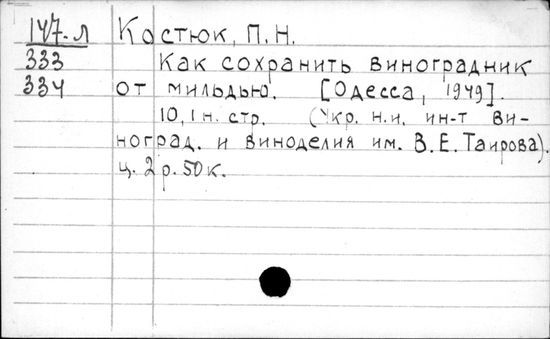 147-Л Костюк, П.Н.
333 Как сохранить виноградник
334 от мильдью. [Одесса, 1949].
10, 1 н. стр. (Укр. н.и. ин-т ви-
ноград. и виноделия им. В.Е. Таирова).
ц. 2 р. 50 к.